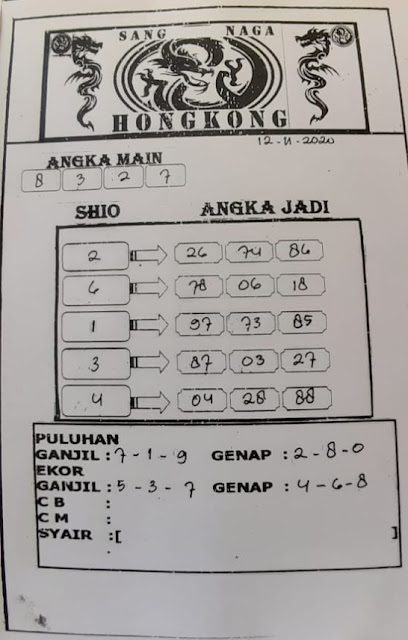 SANG NAGA
HONGKONG
12-11-2020
ANGKA MAIN
8 3 2 7
SHIO ANGKA JADI
2 26 74 86
6 78 06 18
1 97 73 85
3 87 03 27
4 04 28 88
PULUHAN
GANJIL : 7-1-9 GENAP : 2-8-0
EKOR
GANJIL : 5-3-7 GENAP : 4-6-8
C B :
C M :
SYAIR :[ ]